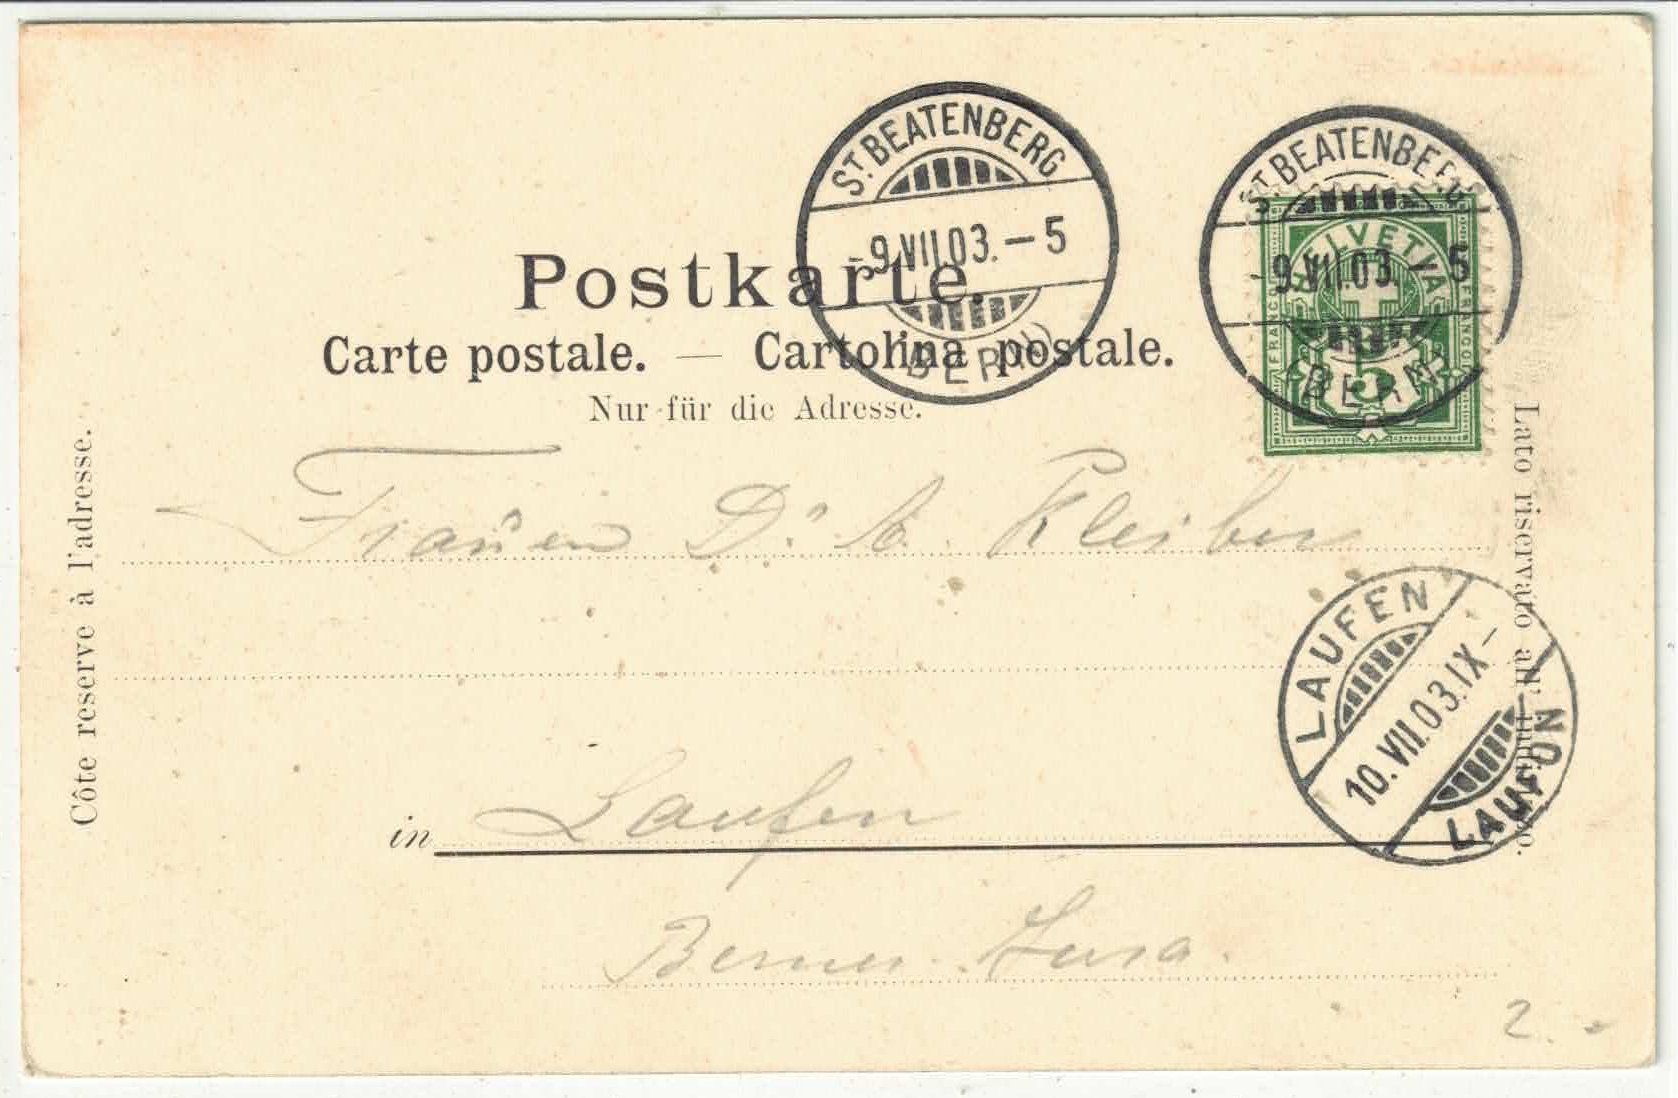 ST. BEATENBERG
-9.VII.03.-5
(BERN)
ST. BEATENBERG
-9.VII.03. 5
(BERN)
HELVETIA
FRANCO
FRANCO
5
Postkarte.
Carte postale. — Cartolina postale.
Nur für die Adresse.
Côte reserve à l'adresse.
Lato riservato all' indirizzo.
Frauen Dr. A. Kleiber
LAUFEN
10.VII.03.IX-
LAUFON
in Laufen
Berner Jura.
2.-